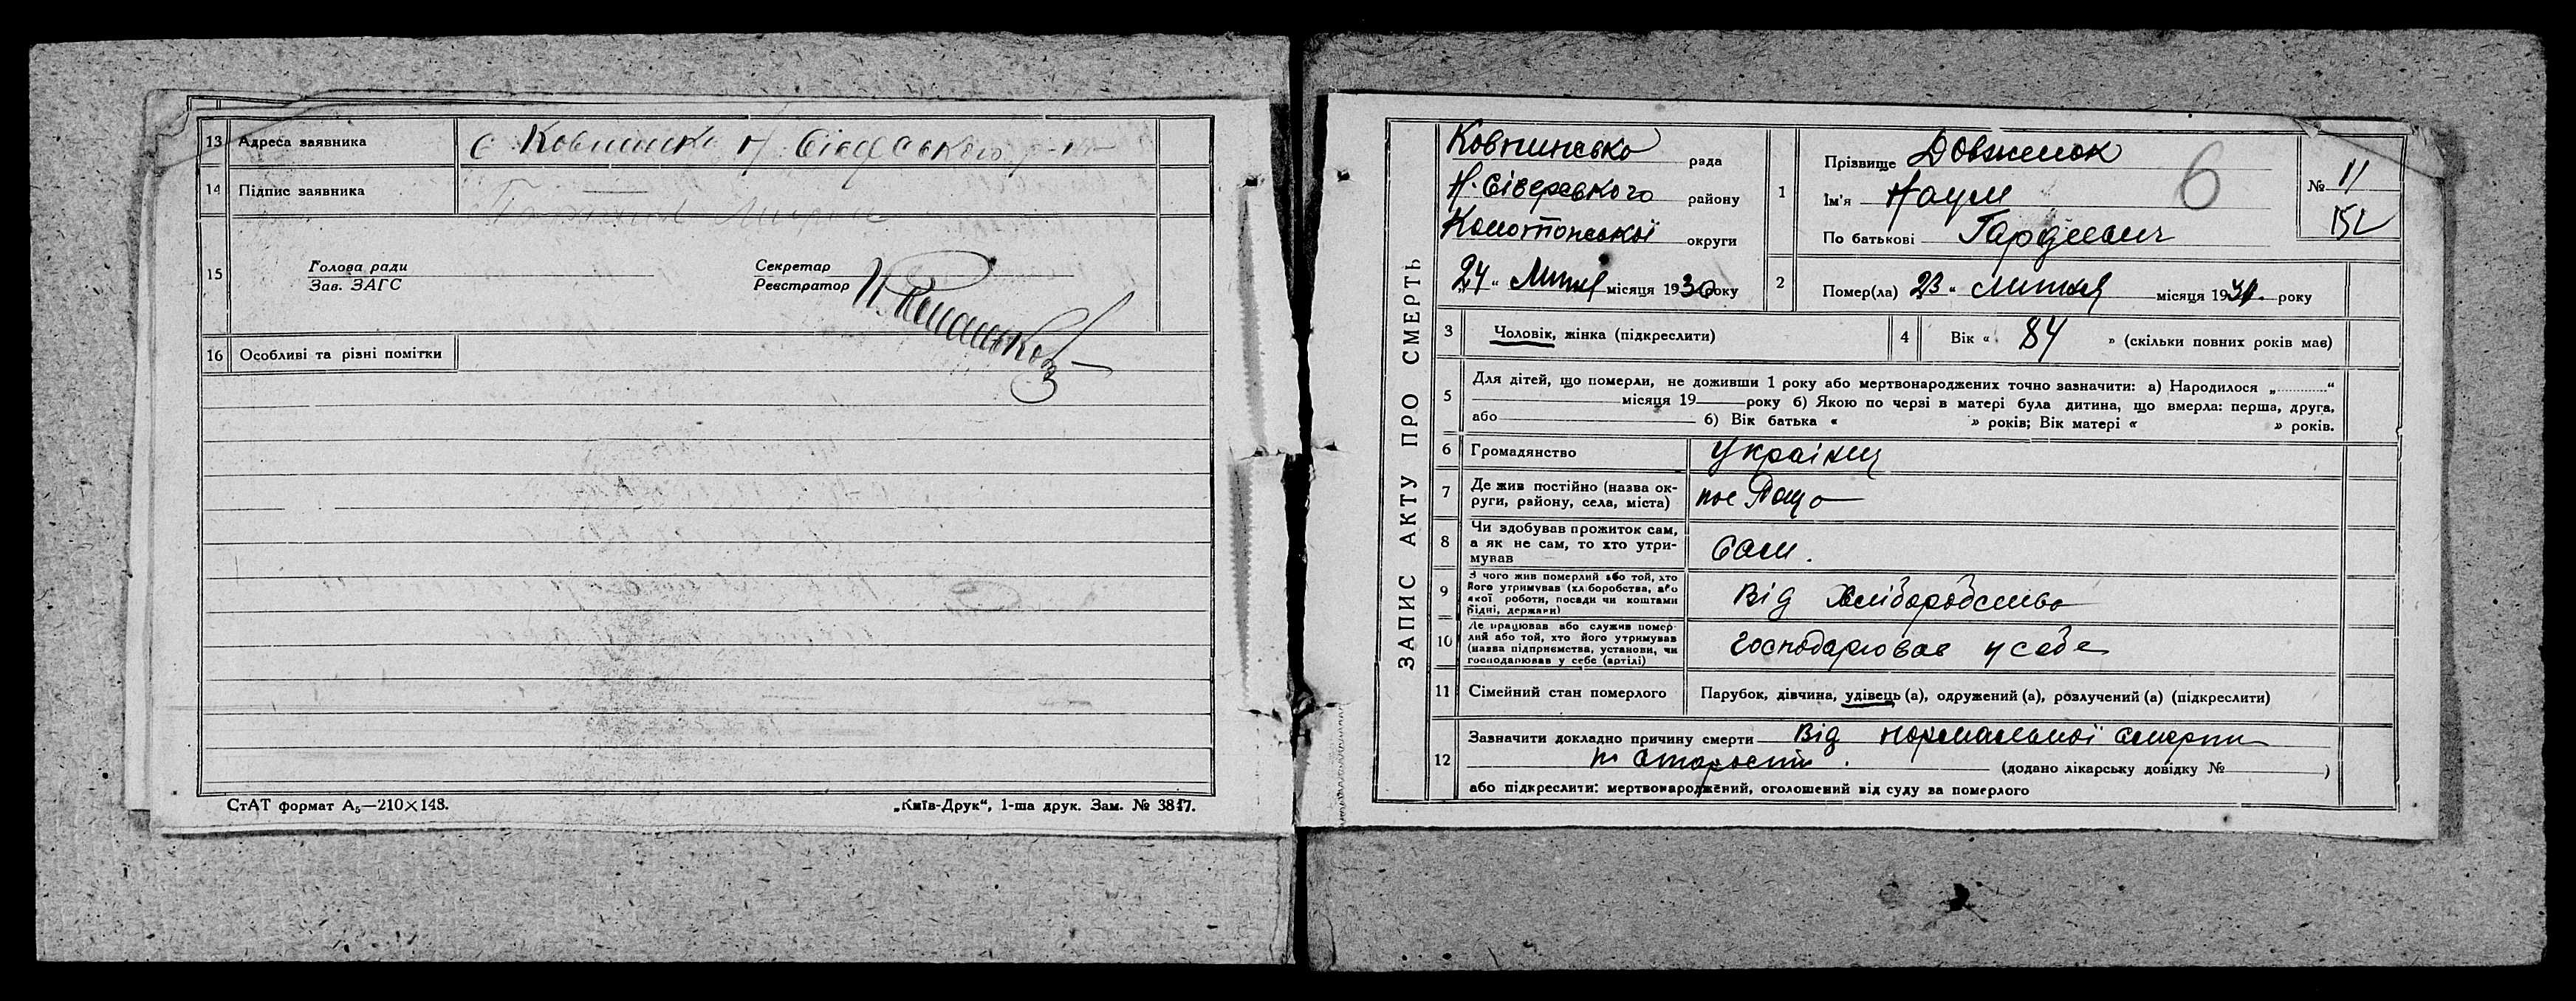 13 Адреса заявника с Ковпинка Н Сіверського р-н
14 Підпис заявника —
15 Голова ради
Зав. ЗАГС
Секретар
Реєстратор
16 Особливі та різні помітки
СтАТ формат А₅—210×148.
„Київ-Друк“, 1-ша друк. Зам. № 3817.
ЗАПИС АКТУ ПРО СМЕРТЬ
Ковпинсько рада
Н. Сіверського району
Конотопської округи
„24“ Лютня місяця 1930 року
1 Прізвище Довженок
Ім'я Наум
По батькові Гордієвич
6
№ 11
152
2 Помер(ла) 23 „ Лютня місяця 1930. року
3 Чоловік, жінка (підкреслити)
4 Вік « 84 » (скільки повних років мав)
5 Для дітей, що померли, не доживши 1 року або мертвонароджених точно зазначити: а) Народилося „ “
місяця 19 року б) Якою по черзі в матері була дитина, що вмерла: перша, друга,
або б) Вік батька « » років; Вік матері « » років.
6 Громадянство Українц
7 Де жив постійно (назва ок-
руги, району, села, міста)
8 Чи здобував прожиток сам,
а як не сам, то хто утри-
мував Сам.
9 З чого жив померлий або той, хто
його утримував (хліборобства, або
якої роботи, посади чи коштами
рідні, держави) Від Хліборобства
10 Де працював або служив помер-
лий або той, хто його утримував
(назва підприємства, установи, чи
господарював у себе (артілі) господарював у себе
11 Сімейний стан померлого Парубок, дівчина, удівець (а), одружений (а), розлучений (а) (підкреслити)
12 Зазначити докладно причину смерти Від нормальної смерти
по старости. (додано лікарську довідку № )
або підкреслити: мертвонароджений, оголошений від суду за померлого